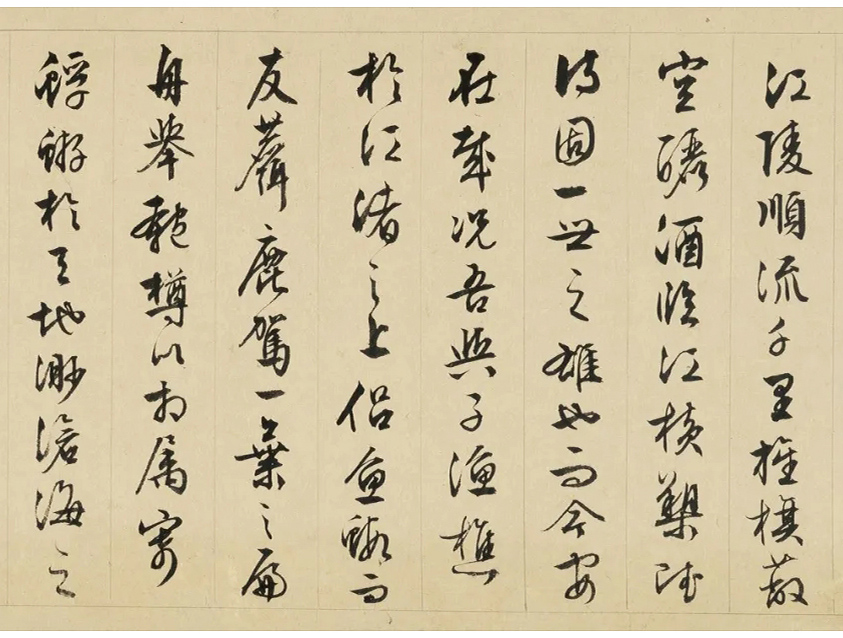 江陵順流千里旌旗蔽
空釃酒臨江橫槊賦
詩固一世之雄也而今安
在哉況吾與子漁樵
於江渚之上侶魚蝦而
友麋鹿駕一葉之扁
舟舉匏樽以相属寄
蜉蝣於天地渺滄海之